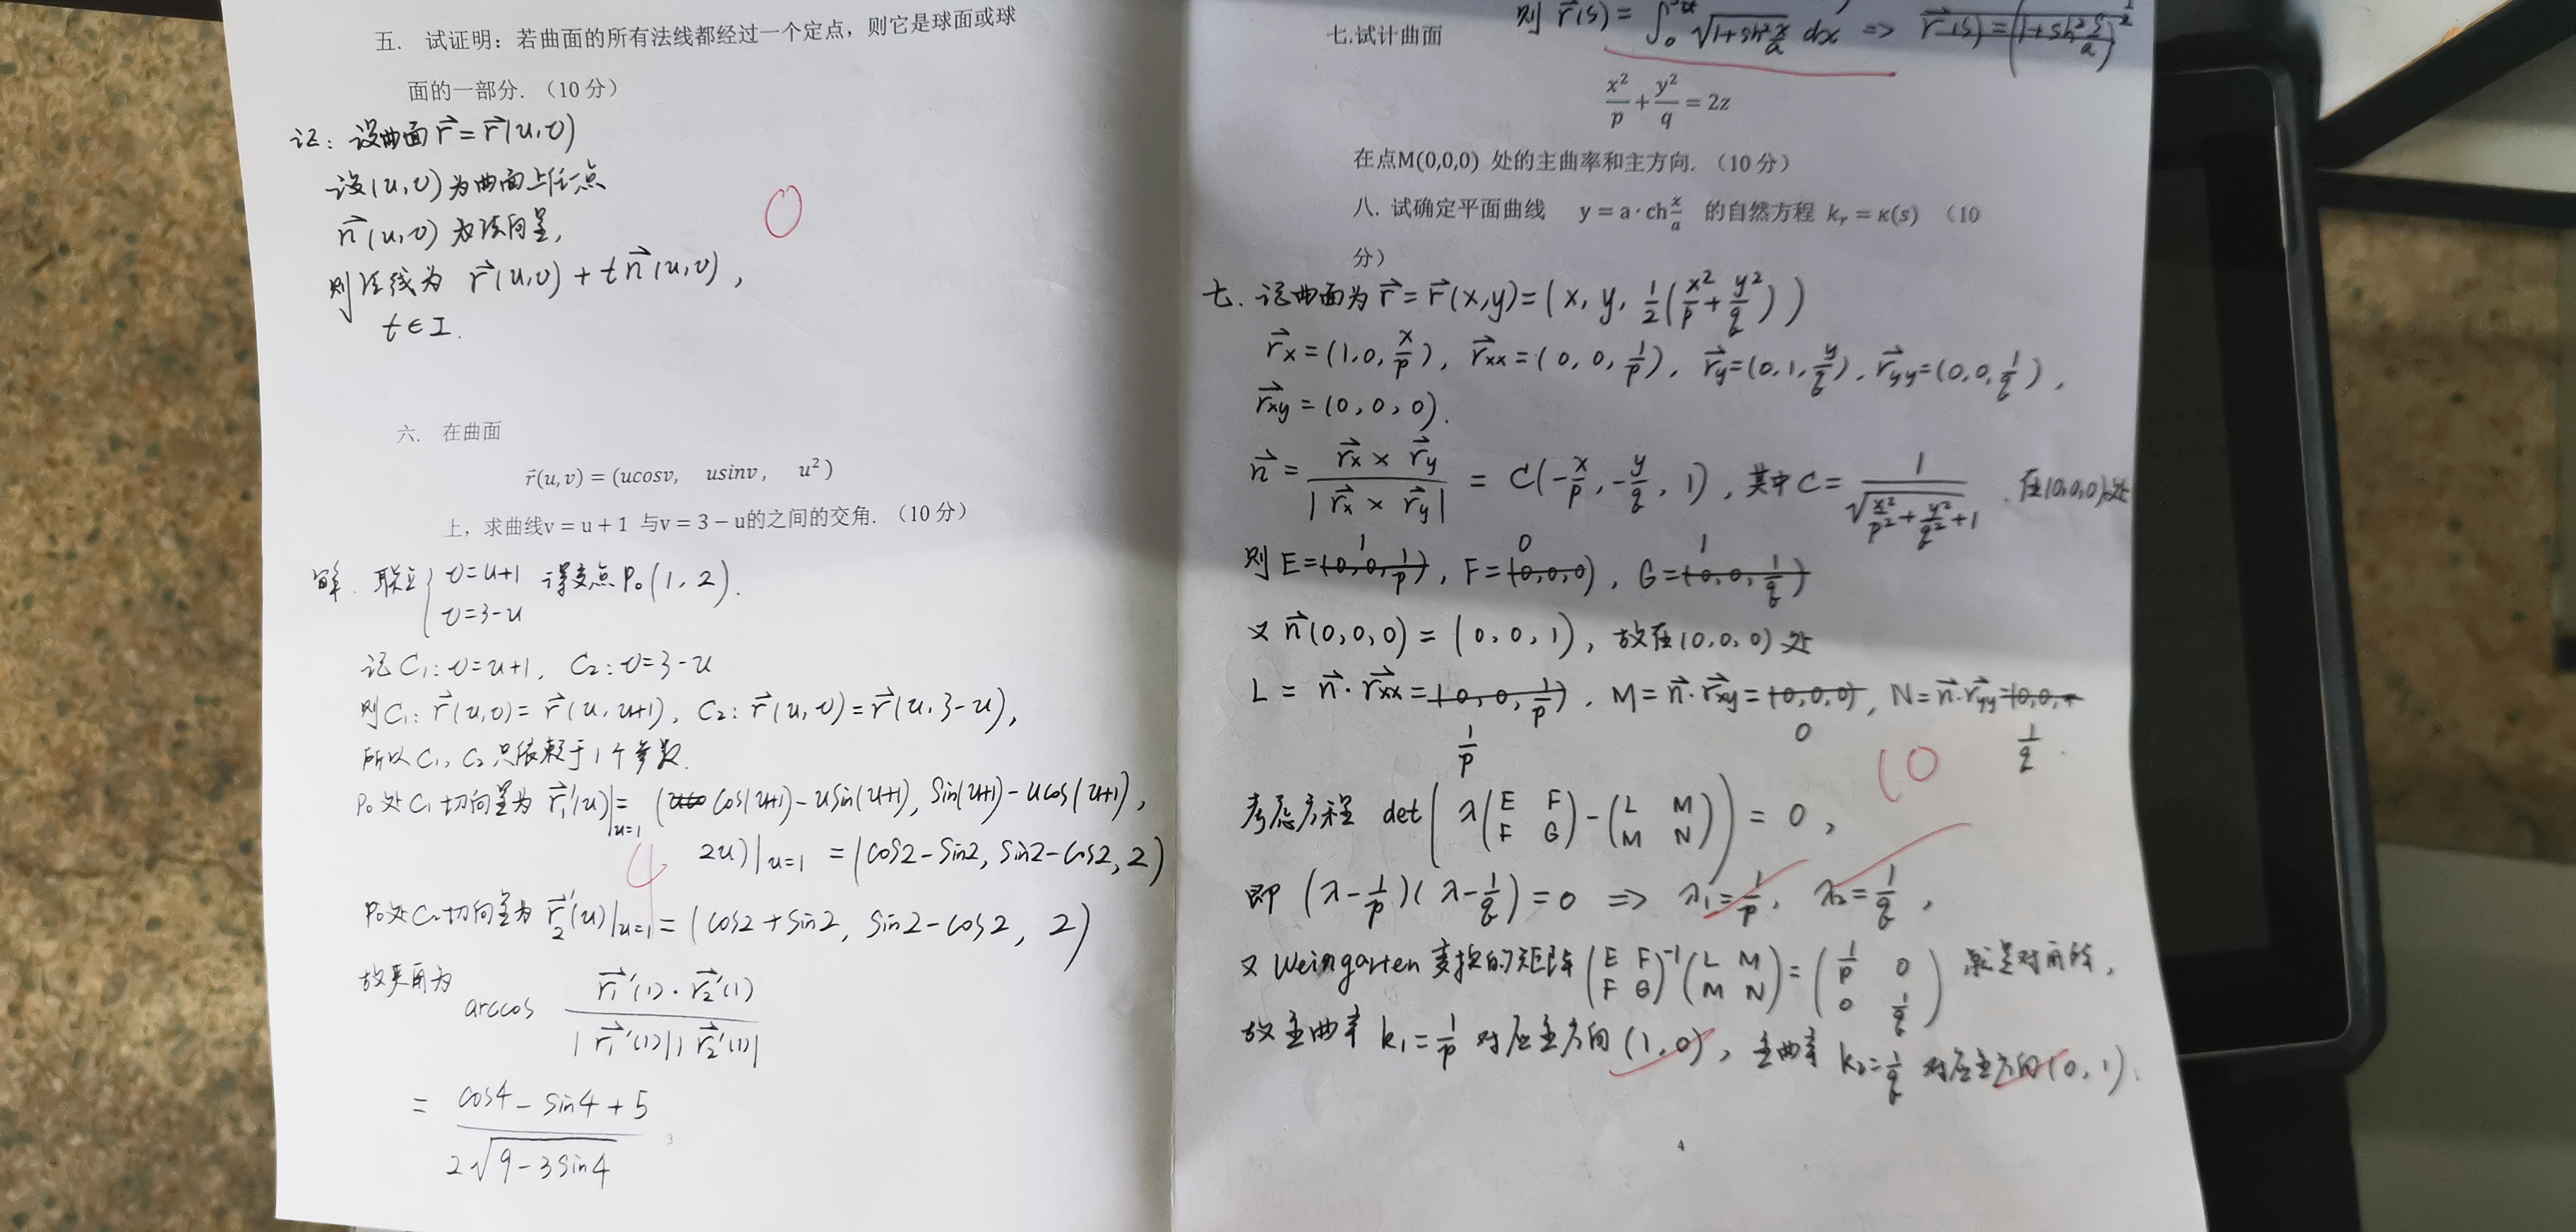 五. 试证明：若曲面的所有法线都经过一个定点，则它是球面或球
面的一部分.（10 分）
证：设曲面 r⃗ = r⃗(u,v)
设(u,v)为曲面上任一点
n⃗(u,v) 为法向量,
则法线为 r⃗(u,v) + t n⃗(u,v),
t∈I.
0
六. 在曲面
r⃗(u,v) = (ucosv, usinv, u²)
上，求曲线v = u + 1 与v = 3 − u的之间的交角.（10 分）
解. 联立 { v=u+1 得交点P₀(1, 2).
v=3-u
记 C₁: v=u+1, C₂: v=3-u
则C₁: r⃗(u,v) = r⃗(u, u+1), C₂: r⃗(u,v) = r⃗(u, 3-u),
所以 C₁, C₂ 只依赖于1个参数.
P₀处C₁切向量为 r⃗₁'(u)|u=1 = (cos(u+1) - usin(u+1), sin(u+1) - ucos(u+1),
2u)|u=1 = (cos2-sin2, sin2-cos2, 2)
4
P₀处C₂切向量为 r⃗₂'(u)|u=1 = (cos2+sin2, sin2-cos2, 2)
故夹角为 arccos r⃗₁'(1)·r⃗₂'(1) / |r⃗₁'(1)||r⃗₂'(1)|
= cos4 - sin4 + 5 / 2√(9-3sin4)
3
则 r⃗(s) = ∫₀ √(1+sh²x/a) dx => r⃗(s) = (1+sh² s/a)^(1/2)
七.试计曲面
x²/p + y²/q = 2z
在点M(0,0,0) 处的主曲率和主方向.（10 分）
八. 试确定平面曲线 y = a · ch x/a 的自然方程 kᵣ = κ(s) （10
分）
七. 记曲面为 r⃗ = r⃗(x,y) = (x, y, 1/2(x²/p + y²/q))
r⃗x = (1,0, x/p), r⃗xx = (0, 0, 1/p), r⃗y = (0,1, y/q), r⃗yy = (0,0, 1/q),
r⃗xy = (0, 0, 0).
n⃗ = r⃗x × r⃗y / |r⃗x × r⃗y| = C(-x/p, -y/q, 1), 其中 C = 1/√(x²/p² + y²/q² + 1). 在(0,0,0)处
则 E = (0,0,1/p) 1, F = (0,0,0) 0, G = (0,0,1/q) 1
又 n⃗(0,0,0) = (0, 0, 1), 故在(0,0,0)处
L = n⃗·r⃗xx = (0,0,1/p), M = n⃗·r⃗xy = (0,0,0), N = n⃗·r⃗yy = (0,0,
1/p 0 1/q.
10
考虑方程 det( λ(E F; F G) - (L M; M N) ) = 0,
即 (λ - 1/p)(λ - 1/q) = 0 => λ₁ = 1/p, λ₂ = 1/q,
又 Weingarten 变换的矩阵 (E F; F G)⁻¹ (L M; M N) = (1/p 0; 0 1/q) 就是对角阵,
故主曲率 k₁ = 1/p 对应主方向 (1,0), 主曲率 k₂ = 1/q 对应主方向(0, 1).
4